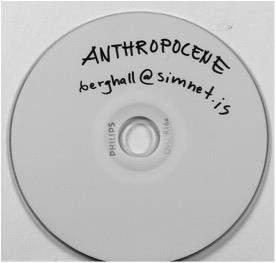 ANTHROPOCENE
berghall@simnet.is
PHILIPS